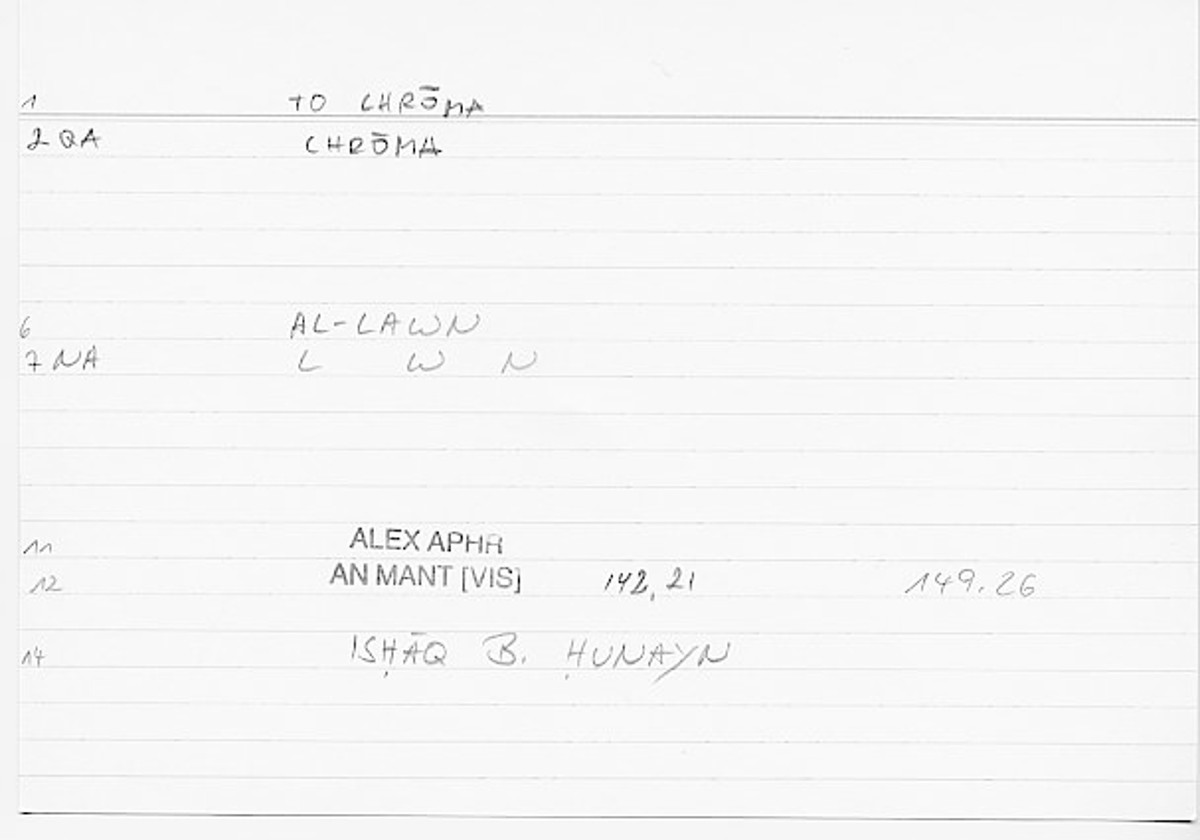 1 TO CHRŌMA
2 QA CHRŌMA
6 AL-LAWN
7 NA L W N
11 ALEX APHR
12 AN MANT [VIS] 142,21 149.26
14 ISḤĀQ B. ḤUNAYN